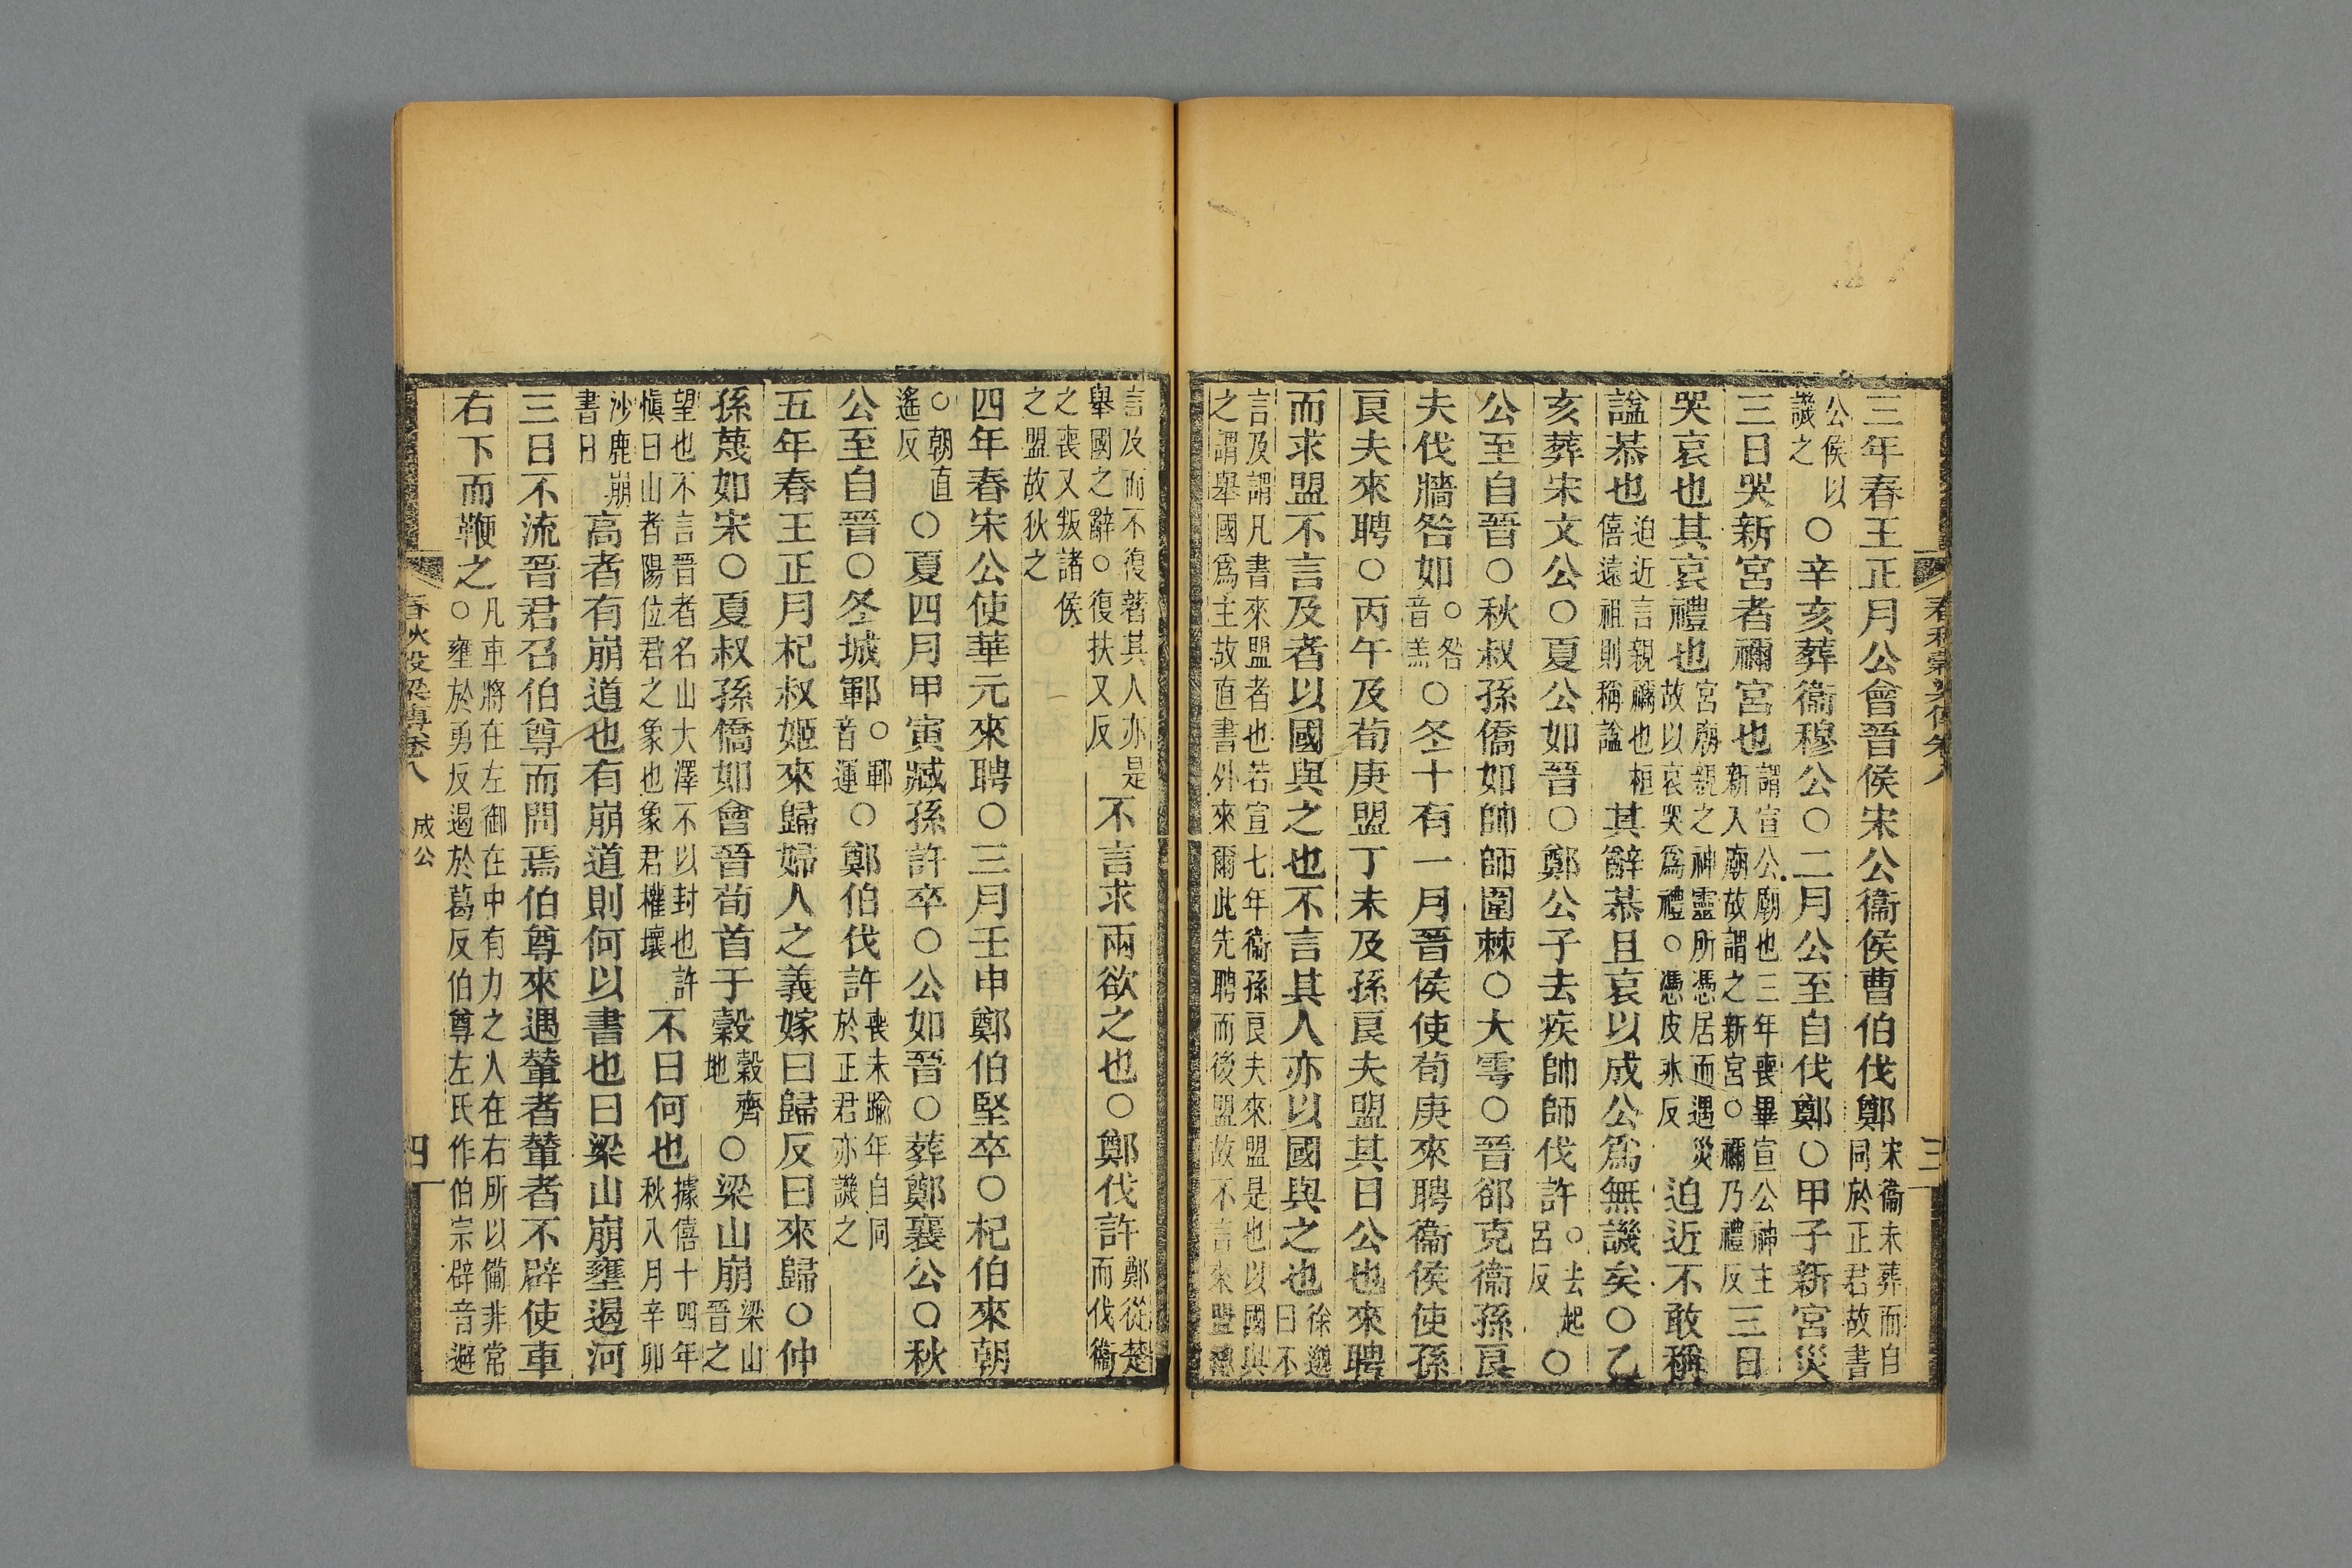 春秋穀梁傳卷八
三
三年春王正月公會晉侯宋公衞侯曹伯伐鄭宋衞未葬而自同於正君故書
公侯以譏之○辛亥葬衞穆公○二月公至自伐鄭○甲子新宮災
三日哭新宮者禰宮也謂宣公廟也三年喪畢宣公神主新入廟故謂之新宮○禰乃禮反三日
哭哀也其哀禮也宮廟親之神靈所憑居而遇災故以哀哭爲禮○憑皮冰反迫近不敢稱
諡恭也迫近言親禰也桓僖遠祖則稱諡其辭恭且哀以成公爲無譏矣○乙
亥葬宋文公○夏公如晉○鄭公子去疾帥師伐許○去起呂反○
公至自晉○秋叔孫僑如帥師圍棘○大雩○晉郤克衞孫良
夫伐牆咎如○咎音羔○冬十有一月晉侯使荀庚來聘衞侯使孫
良夫來聘○丙午及荀庚盟丁未及孫良夫盟其日公也來聘
而求盟不言及者以國與之也不言其人亦以國與之也徐邈曰不
言及謂凡書來盟者也若宣七年衞孫良夫來盟是也以國與之謂舉國爲主故直書外來爾此先聘而後盟故不言來盟
言及而不復著其人亦是舉國之辭○復扶又反不言求兩欲之也○鄭伐許鄭從楚而伐衞
之喪又叛諸侯之盟故狄之
四年春宋公使華元來聘○三月壬申鄭伯堅卒○杞伯來朝
○朝直遙反○夏四月甲寅臧孫許卒○公如晉○葬鄭襄公○秋
公至自晉○冬城鄆○鄆音運○鄭伯伐許喪未踰年自同於正君亦譏之
五年春王正月杞叔姬來歸婦人之義嫁曰歸反曰來歸○仲
孫蔑如宋○夏叔孫僑如會晉荀首于穀穀齊地○梁山崩梁山晉之
望也不言晉者名山大澤不以封也許愼曰山者陽位君之象也象君權壞不日何也據僖十四年秋八月辛卯
沙鹿崩書日高者有崩道也有崩道則何以書也曰梁山崩壅遏河
三日不流晉君召伯尊而問焉伯尊來遇輦者輦者不辟使車
右下而鞭之凡車將在左御在中有力之人在右所以備非常○壅於勇反遏於葛反伯尊左氏作伯宗辟音避
春秋穀梁傳卷八
成公
四